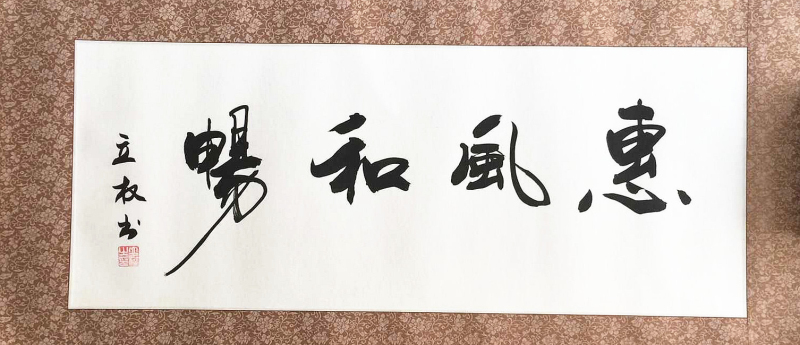 惠風和暢
立权书